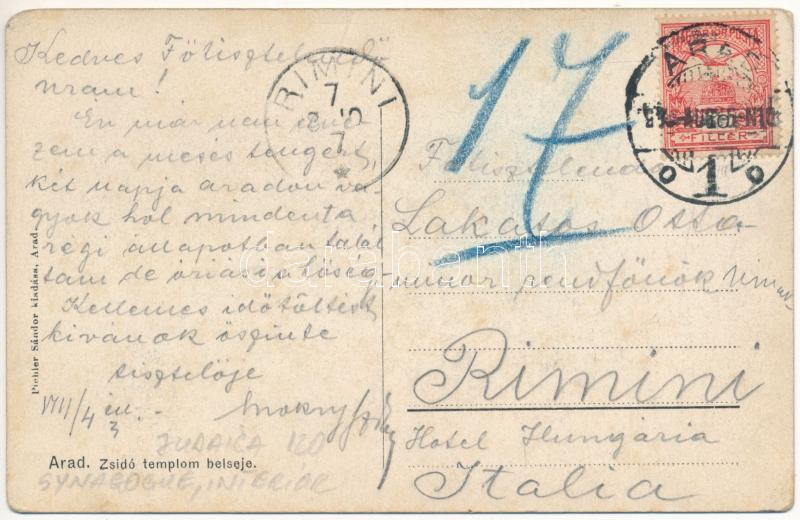 Kedves Főtisztelendő
uram!
Én már nem érze-
zem a mesés tengert,
két napja aradon va-
gyok hol mindent a
régi állapotban talál
tam de óriási a hőség.
Kellemes időtöltést
kivánok őszinte
tisztelője
VIII/4 én
Pichler Sándor kiadása, Arad.
Arad. Zsidó templom belseje.
JUDAICA 120
SYNAGOGUE, INTERIOR
RIMINI
7
8
7
15
17
ARAD
AUG
FILLÉR
1
Főtisztelendő
Lakatos Ottó
minor rendfőnök úrnak
Rimini
Hotel Hungária
Itália
darabanth